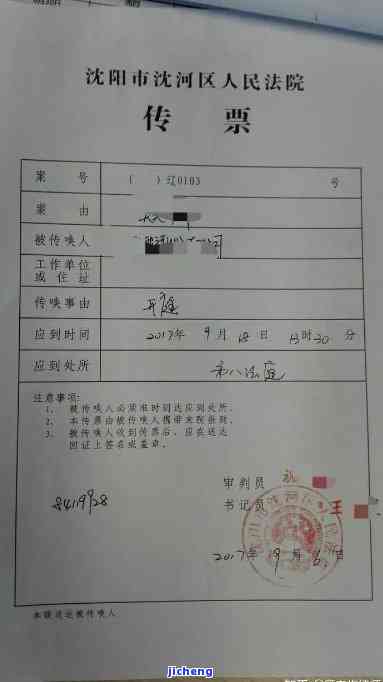 沈阳市沈河区人民法院
传票
案号 ( )辽0103 号
案由
被传唤人
工作单位
或住址
传唤事由 开庭
应到时间 2017年 9月 18日 13时30分
应到处所 第八法庭
注意事项:
1、被传唤人必须准时到达应到处所。
2、本传票由被传唤人携带来院报到。
3、被传唤人收到传票后,应在送达
回证上签名或盖章。
审判员
书记员 王
2017年 9月 6日
本联送达被传唤人
jicheng